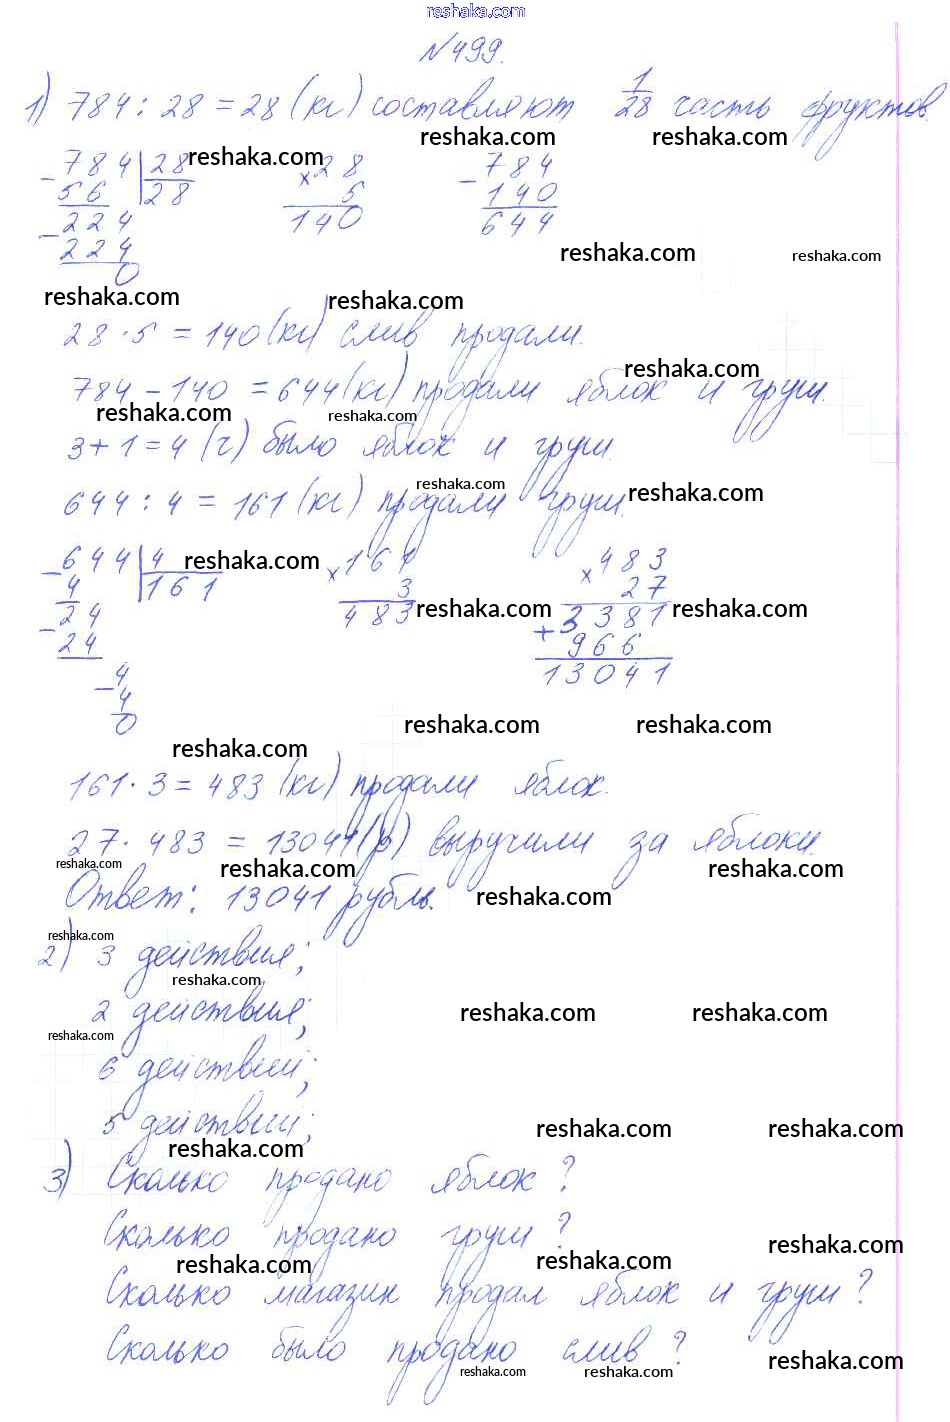 reshaka.com
№499.
1) 784 : 28 = 28 (кг) составляют 1/28 часть фруктов.
reshaka.com reshaka.com
784 | 28 reshaka.com × 28 - 784
- 56 | 28 5 140
- 224 140 644
224 reshaka.com reshaka.com
0
reshaka.com reshaka.com
28 · 5 = 140 (кг) слив продали.
reshaka.com
784 - 140 = 644 (кг) продали яблок и груш.
reshaka.com reshaka.com
3 + 1 = 4 (ч) было яблок и груш.
reshaka.com reshaka.com
644 : 4 = 161 (кг) продали груш.
- 644 | 4 reshaka.com × 161 × 483
4 | 161 3 27
- 24 483 reshaka.com + 3381 reshaka.com
24 966
- 4 13041
4
0 reshaka.com reshaka.com
reshaka.com
161 · 3 = 483 (кг) продали яблок.
27 · 483 = 13041 (р) выручили за яблоки.
reshaka.com reshaka.com reshaka.com
Ответ: 13041 рубль. reshaka.com
reshaka.com
2) 3 действия;
reshaka.com
2 действия; reshaka.com reshaka.com
reshaka.com
6 действий;
5 действий; reshaka.com reshaka.com
reshaka.com
3) Сколько продано яблок?
Сколько продано груш?
reshaka.com reshaka.com reshaka.com
Сколько магазин продал яблок и груш?
Сколько было продано слив?
reshaka.com reshaka.com reshaka.com